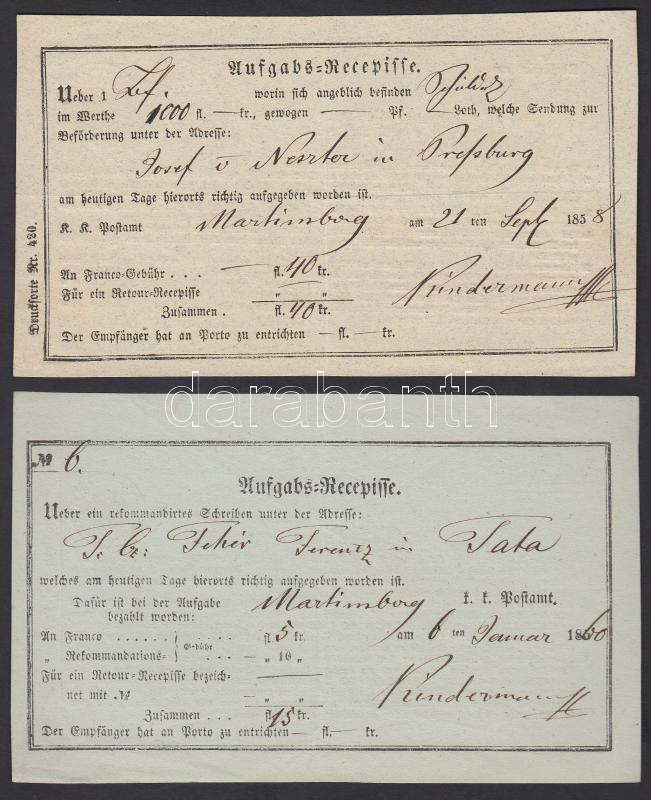 Aufgabs-Recepisse.
Ueber 1 worin sich angeblich befinden
im Werthe 1000 fl. — kr., gewogen — Pf. Loth, welche Sendung zur
Beförderung unter der Adresse:
Josef v in Preßburg
am heutigen Tage hierorts richtig aufgegeben worden ist.
K. K. Postamt Martinsberg am 21 ten Sept 1858
An Franco-Gebühr . . . — fl. 40 kr.
Für ein Retour-Recepisse „ „
Zusammen . fl. 40 kr.
Der Empfänger hat an Porto zu entrichten — fl. — kr.
Drucksorte Nr. 420.
darabanth
№ 6.
Aufgabs-Recepisse.
Ueber ein rekommandirtes Schreiben unter der Adresse:
Fehér Ferentz in Tata
welches am heutigen Tage hierorts richtig aufgegeben worden ist.
Dafür ist bei der Aufgabe Martinsberg k. k. Postamt.
bezahlt worden:
An Franco . . . . . . . . . . fl. 5 kr. am 6 ten Januar 1860
„ Rekommandations- Gebühr — „ 10 „
Für ein Retour-Recepisse bezeich-
net mit № — „ „
Zusammen . . . fl. 15 kr.
Der Empfänger hat an Porto zu entrichten — fl. — kr.